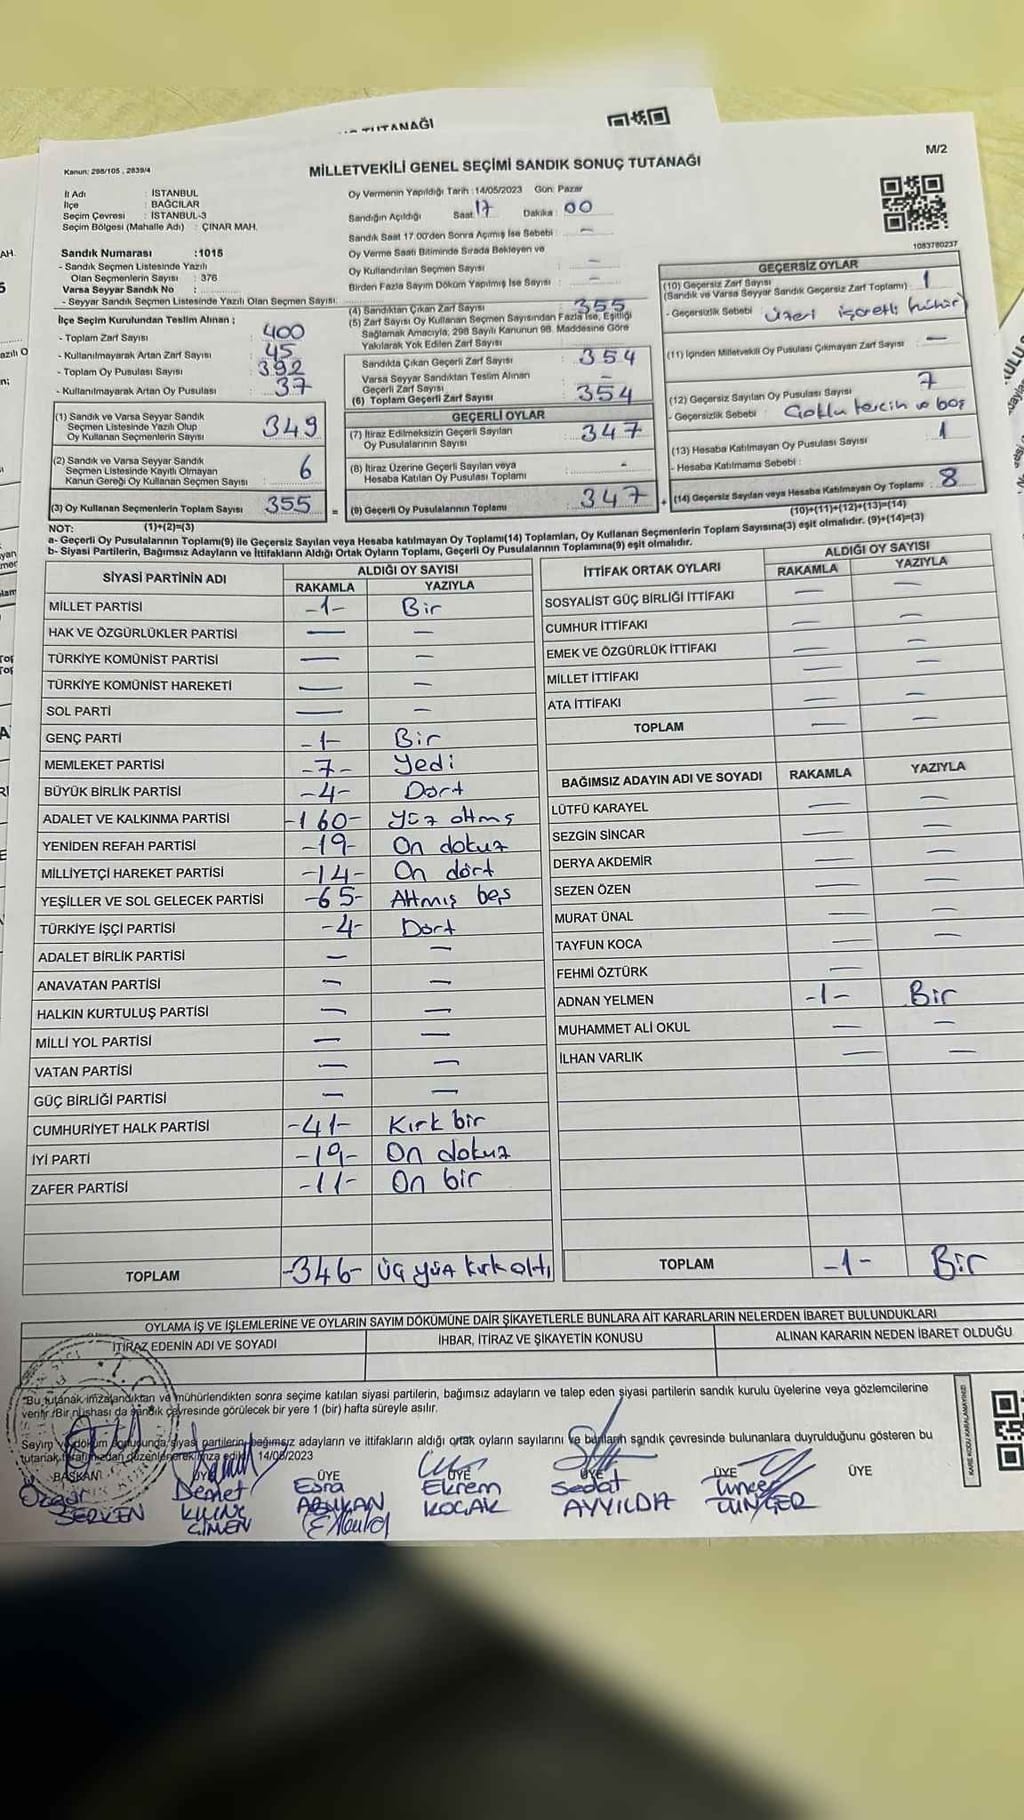 TUTANAĞI
M/2
Kanun: 298/105 , 2839/4
MİLLETVEKİLİ GENEL SEÇİMİ SANDIK SONUÇ TUTANAĞI
İl Adı : İSTANBUL
İlçe : BAĞCILAR
Seçim Çevresi : İSTANBUL-3
Seçim Bölgesi (Mahalle Adı) : ÇINAR MAH.
Oy Vermenin Yapıldığı Tarih :14/05/2023 Gün: Pazar
Sandığın Açıldığı Saat 17 Dakika : 00
Sandık Saat 17.00'den Sonra Açımış İse Sebebi : –
Oy Verme Saati Bitiminde Sırada Bekleyen ve
Oy Kullandırılan Seçmen Sayısı : –
Birden Fazla Sayım Döküm Yapılmış İse Sayısı : –
1083780237
Sandık Numarası :1015
- Sandık Seçmen Listesinde Yazılı
Olan Seçmenlerin Sayısı : 376
Varsa Seyyar Sandık No :
- Seyyar Sandık Seçmen Listesinde Yazılı Olan Seçmen Sayısı:
İlçe Seçim Kurulundan Teslim Alınan ;
- Toplam Zarf Sayısı : 400
- Kullanılmayarak Artan Zarf Sayısı : 45
- Toplam Oy Pusulası Sayısı : 392
- Kullanılmayarak Artan Oy Pusulası : 37
(1) Sandık ve Varsa Seyyar Sandık
Seçmen Listesinde Yazılı Olup
Oy Kullanan Seçmenlerin Sayısı : 349
(2) Sandık ve Varsa Seyyar Sandık
Seçmen Listesinde Kayıtlı Olmayan
Kanun Gereği Oy Kullanan Seçmen Sayısı : 6
(3) Oy Kullanan Seçmenlerin Toplam Sayısı 355
(4) Sandıktan Çıkan Zarf Sayısı : 355
(5) Zarf Sayısı Oy Kullanan Seçmen Sayısından Fazla İse, Eşitliği
Sağlamak Amacıyla, 298 Sayılı Kanunun 98. Maddesine Göre
Yakılarak Yok Edilen Zarf Sayısı :
Sandıkta Çıkan Geçerli Zarf Sayısı : 354
Varsa Seyyar Sandıktan Teslim Alınan
Geçerli Zarf Sayısı : –
(6) Toplam Geçerli Zarf Sayısı : 354
GEÇERLİ OYLAR
(7) İtiraz Edilmeksizin Geçerli Sayılan
Oy Pusulalarının Sayısı : 347
(8) İtiraz Üzerine Geçerli Sayılan veya
Hesaba Katılan Oy Pusulası Toplamı : -
= (9) Geçerli Oy Pusulalarının Toplamı : 347
GEÇERSİZ OYLAR
(10) Geçersiz Zarf Sayısı
(Sandık ve Varsa Seyyar Sandık Geçersiz Zarf Toplamı) : 1
- Geçersizlik Sebebi : Üzeri işaretli (mühür)
(11) İçinden Milletvekili Oy Pusulası Çıkmayan Zarf Sayısı : –
(12) Geçersiz Sayılan Oy Pusulası Sayısı : 7
- Geçersizlik Sebebi : Çoklu tercih ve boş
(13) Hesaba Katılmayan Oy Pusulası Sayısı : 1
- Hesaba Katılmama Sebebi :
+ (14) Geçersiz Sayılan veya Hesaba Katılmayan Oy Toplamı : 8
(10)+(11)+(12)+(13)=(14)
NOT: (1)+(2)=(3)
a- Geçerli Oy Pusulalarının Toplamı(9) ile Geçersiz Sayılan veya Hesaba katılmayan Oy Toplamı(14) Toplamları, Oy Kullanan Seçmenlerin Toplam Sayısına(3) eşit olmalıdır. (9)+(14)=(3)
b- Siyasi Partilerin, Bağımsız Adayların ve İttifakların Aldığı Ortak Oyların Toplamı, Geçerli Oy Pusulalarının Toplamına(9) eşit olmalıdır.
SİYASİ PARTİNİN ADI
ALDIĞI OY SAYISI
RAKAMLA YAZIYLA
MİLLET PARTİSİ -1- Bir
HAK VE ÖZGÜRLÜKLER PARTİSİ — –
TÜRKİYE KOMÜNİST PARTİSİ — –
TÜRKİYE KOMÜNİST HAREKETİ — –
SOL PARTİ — –
GENÇ PARTİ -1- Bir
MEMLEKET PARTİSİ -7- Yedi
BÜYÜK BİRLİK PARTİSİ -4- Dört
ADALET VE KALKINMA PARTİSİ -160- Yüz altmış
YENİDEN REFAH PARTİSİ -19- On dokuz
MİLLİYETÇİ HAREKET PARTİSİ -14- On dört
YEŞİLLER VE SOL GELECEK PARTİSİ -65- Altmış beş
TÜRKİYE İŞÇİ PARTİSİ -4- Dört
ADALET BİRLİK PARTİSİ — —
ANAVATAN PARTİSİ — —
HALKIN KURTULUŞ PARTİSİ — —
MİLLİ YOL PARTİSİ — —
VATAN PARTİSİ — —
GÜÇ BİRLİĞİ PARTİSİ — —
CUMHURİYET HALK PARTİSİ -41- Kırk bir
İYİ PARTİ -19- On dokuz
ZAFER PARTİSİ -11- On bir
TOPLAM -346- üç yüz kırk altı
İTTİFAK ORTAK OYLARI
ALDIĞI OY SAYISI
RAKAMLA YAZIYLA
SOSYALİST GÜÇ BİRLİĞİ İTTİFAKI — —
CUMHUR İTTİFAKI — —
EMEK VE ÖZGÜRLÜK İTTİFAKI — —
MİLLET İTTİFAKI — —
ATA İTTİFAKI — —
TOPLAM — —
BAĞIMSIZ ADAYIN ADI VE SOYADI RAKAMLA YAZIYLA
LÜTFÜ KARAYEL — —
SEZGİN SİNCAR — —
DERYA AKDEMİR — —
SEZEN ÖZEN — —
MURAT ÜNAL — —
TAYFUN KOCA — —
FEHMİ ÖZTÜRK —
ADNAN YELMEN -1- Bir
MUHAMMET ALİ OKUL — —
İLHAN VARLIK — —
TOPLAM -1- Bir
OYLAMA İŞ VE İŞLEMLERİNE VE OYLARIN SAYIM DÖKÜMÜNE DAİR ŞİKAYETLERLE BUNLARA AİT KARARLARIN NELERDEN İBARET BULUNDUKLARI
İTİRAZ EDENİN ADI VE SOYADI
İHBAR, İTİRAZ VE ŞİKAYETİN KONUSU
ALINAN KARARIN NEDEN İBARET OLDUĞU
Bu tutanak imzalandıktan ve mühürlendikten sonra seçime katılan siyasi partilerin, bağımsız adayların ve talep eden siyasi partilerin sandık kurulu üyelerine veya gözlemcilerine
verilir. Bir nüshası da sandık çevresinde görülecek bir yere 1 (bir) hafta süreyle asılır.
Sayım ve döküm sonucunda, siyasi partilerin, bağımsız adayların ve ittifakların aldığı ortak oyların sayılarını ve bunların sandık çevresinde bulunanlara duyrulduğunu gösteren bu
tutanak tarafımızdan düzenlenerek imza edildi. 14/05/2023
BAŞKAN ÜYE ÜYE ÜYE ÜYE ÜYE ÜYE
Özgür Demet Esra Ekrem Sedat Tuncer
KILINÇ KOÇAK AYYILDIZ
KARE KODU KARALAMAYINIZ!